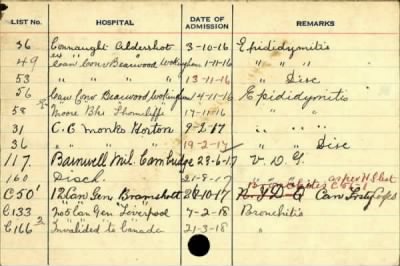 LIST No. HOSPITAL DATE OF ADMISSION REMARKS
36 Connaught Aldershot 3-10-16 Epididymitis
49 Can Conv Bearwood Wokingham 1-11-16 " "
53 " " " " 13-11-16 " Disc
56 Can Conv Bearwood Wokingham 14-11-16 Epididymitis
58 Moore Bks Shorncliffe 17-11-16 " "
31 C.C. Monks Horton 9-2-17 " "
36 " " " 19-2-17 " Disc
117. Barnwell Mil. Cambridge 23-6-17 V.D.G.
160 Disch. 21-8-17 " " "
C50' 12 Can Gen Bramshott 10-17 V.D.G
C133 No 5 Can Gen Liverpool 7-2-18 Bronchitis
C166 2 Invalided to Canada 21-3-18 "